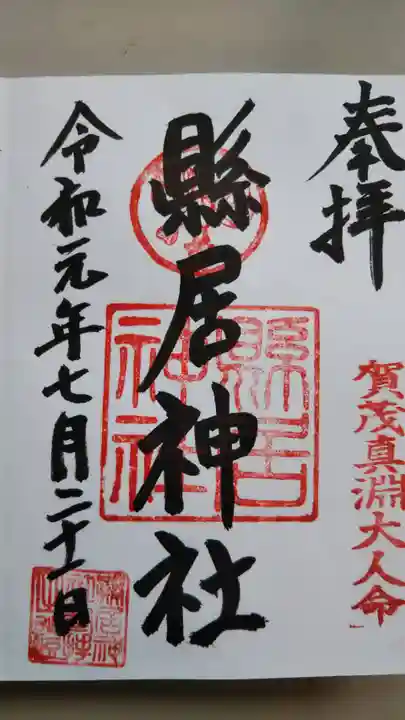 奉拝
賀茂真淵大人命」
縣居神社
縣居神社
令和元年七月二十一日